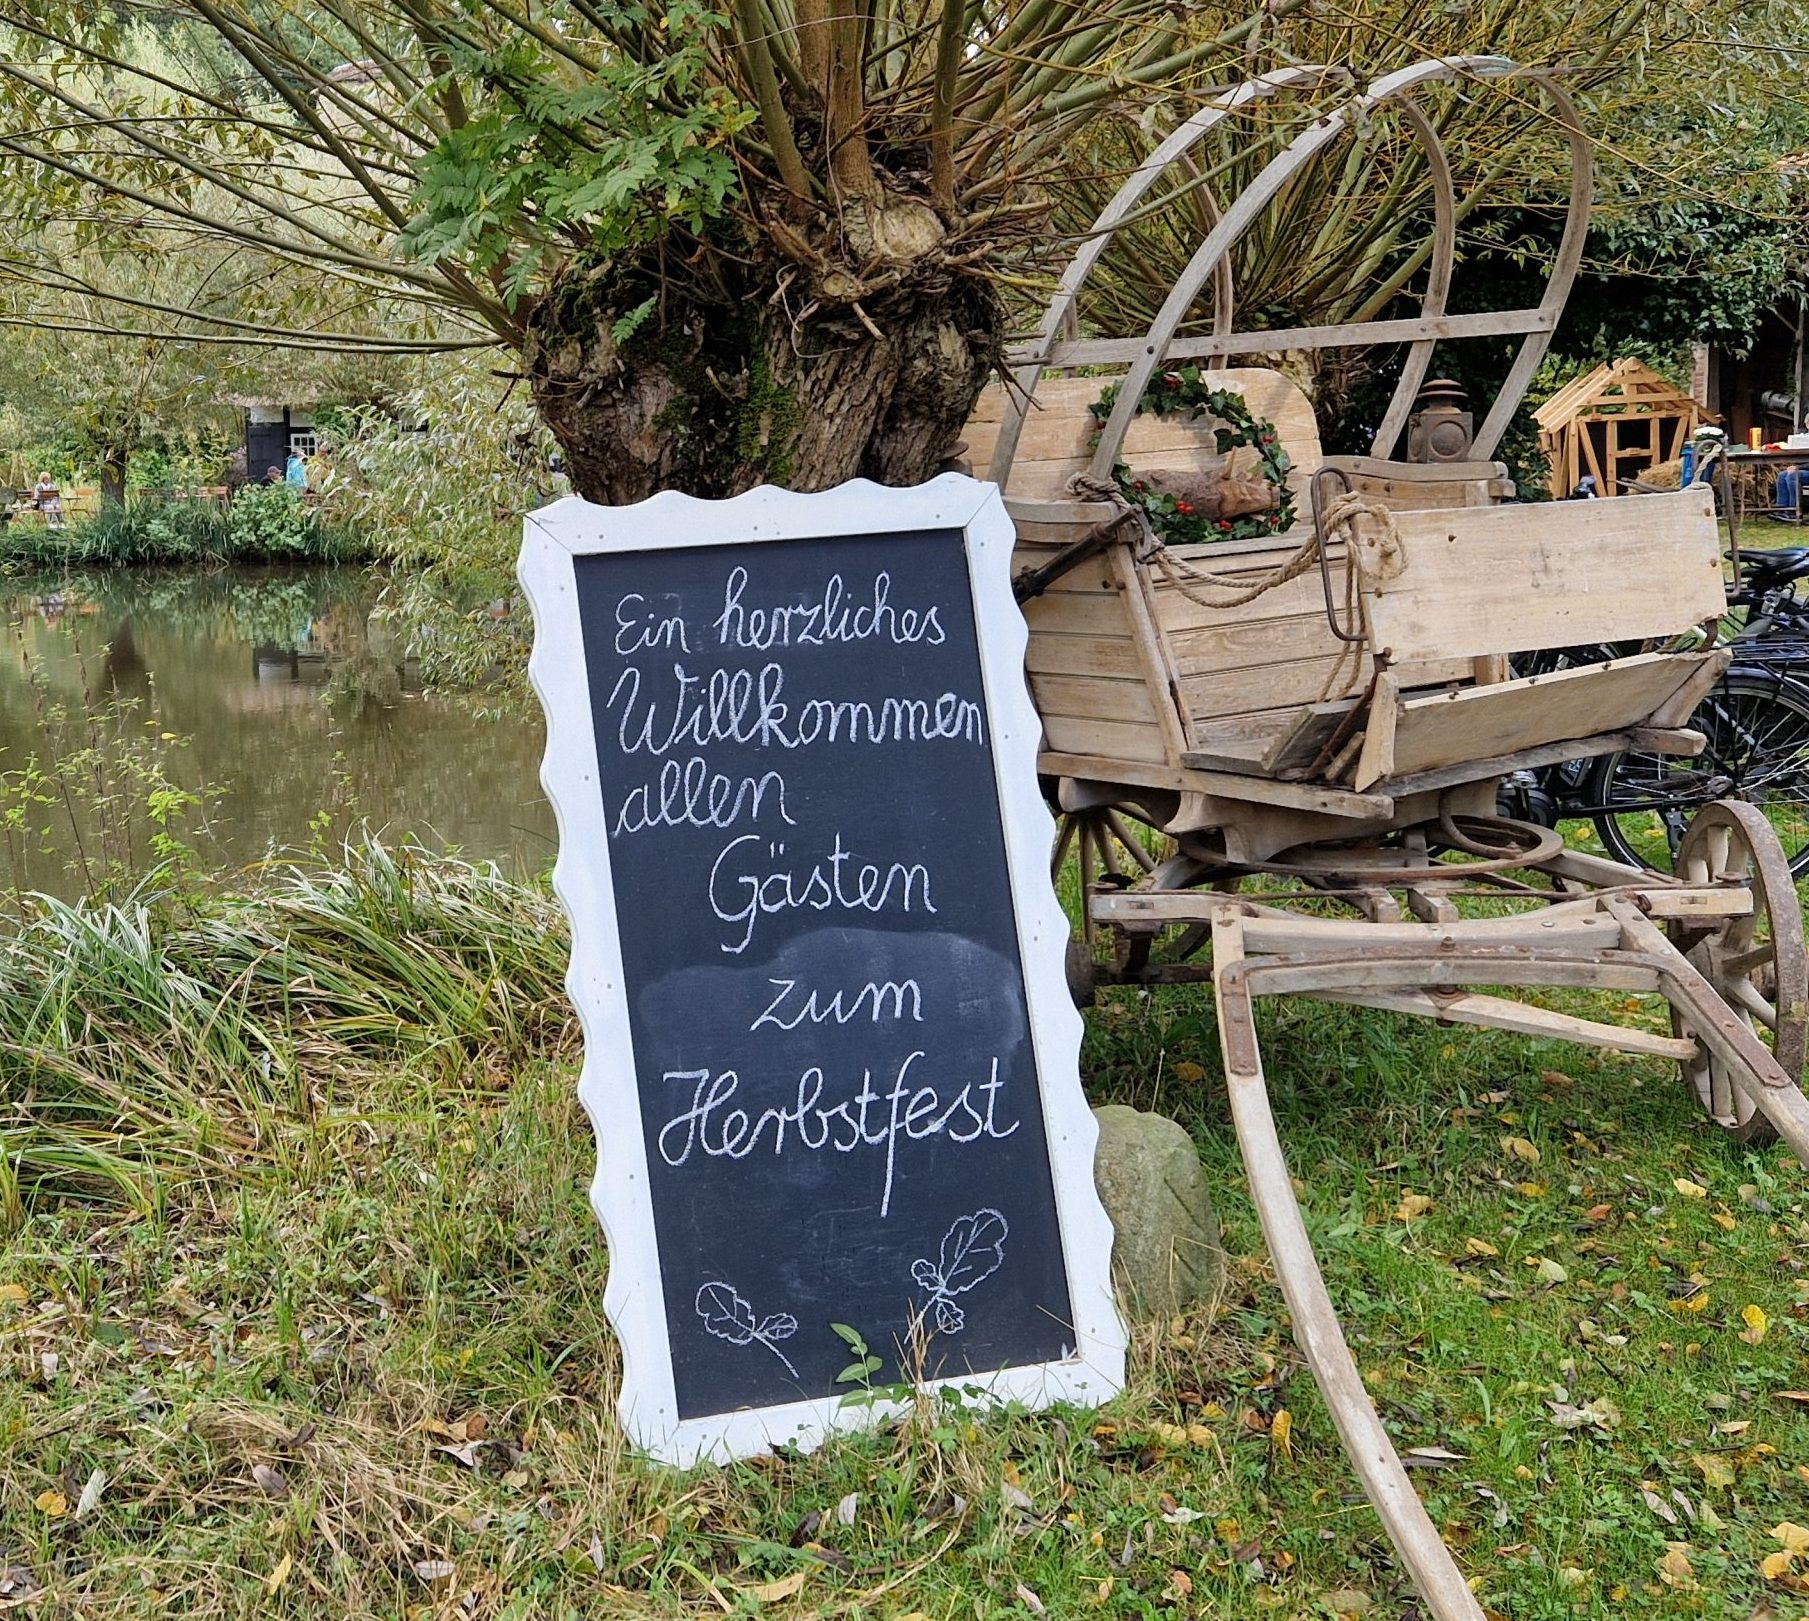 Ein herzliches
Willkommen
allen
Gästen
zum
Herbstfest